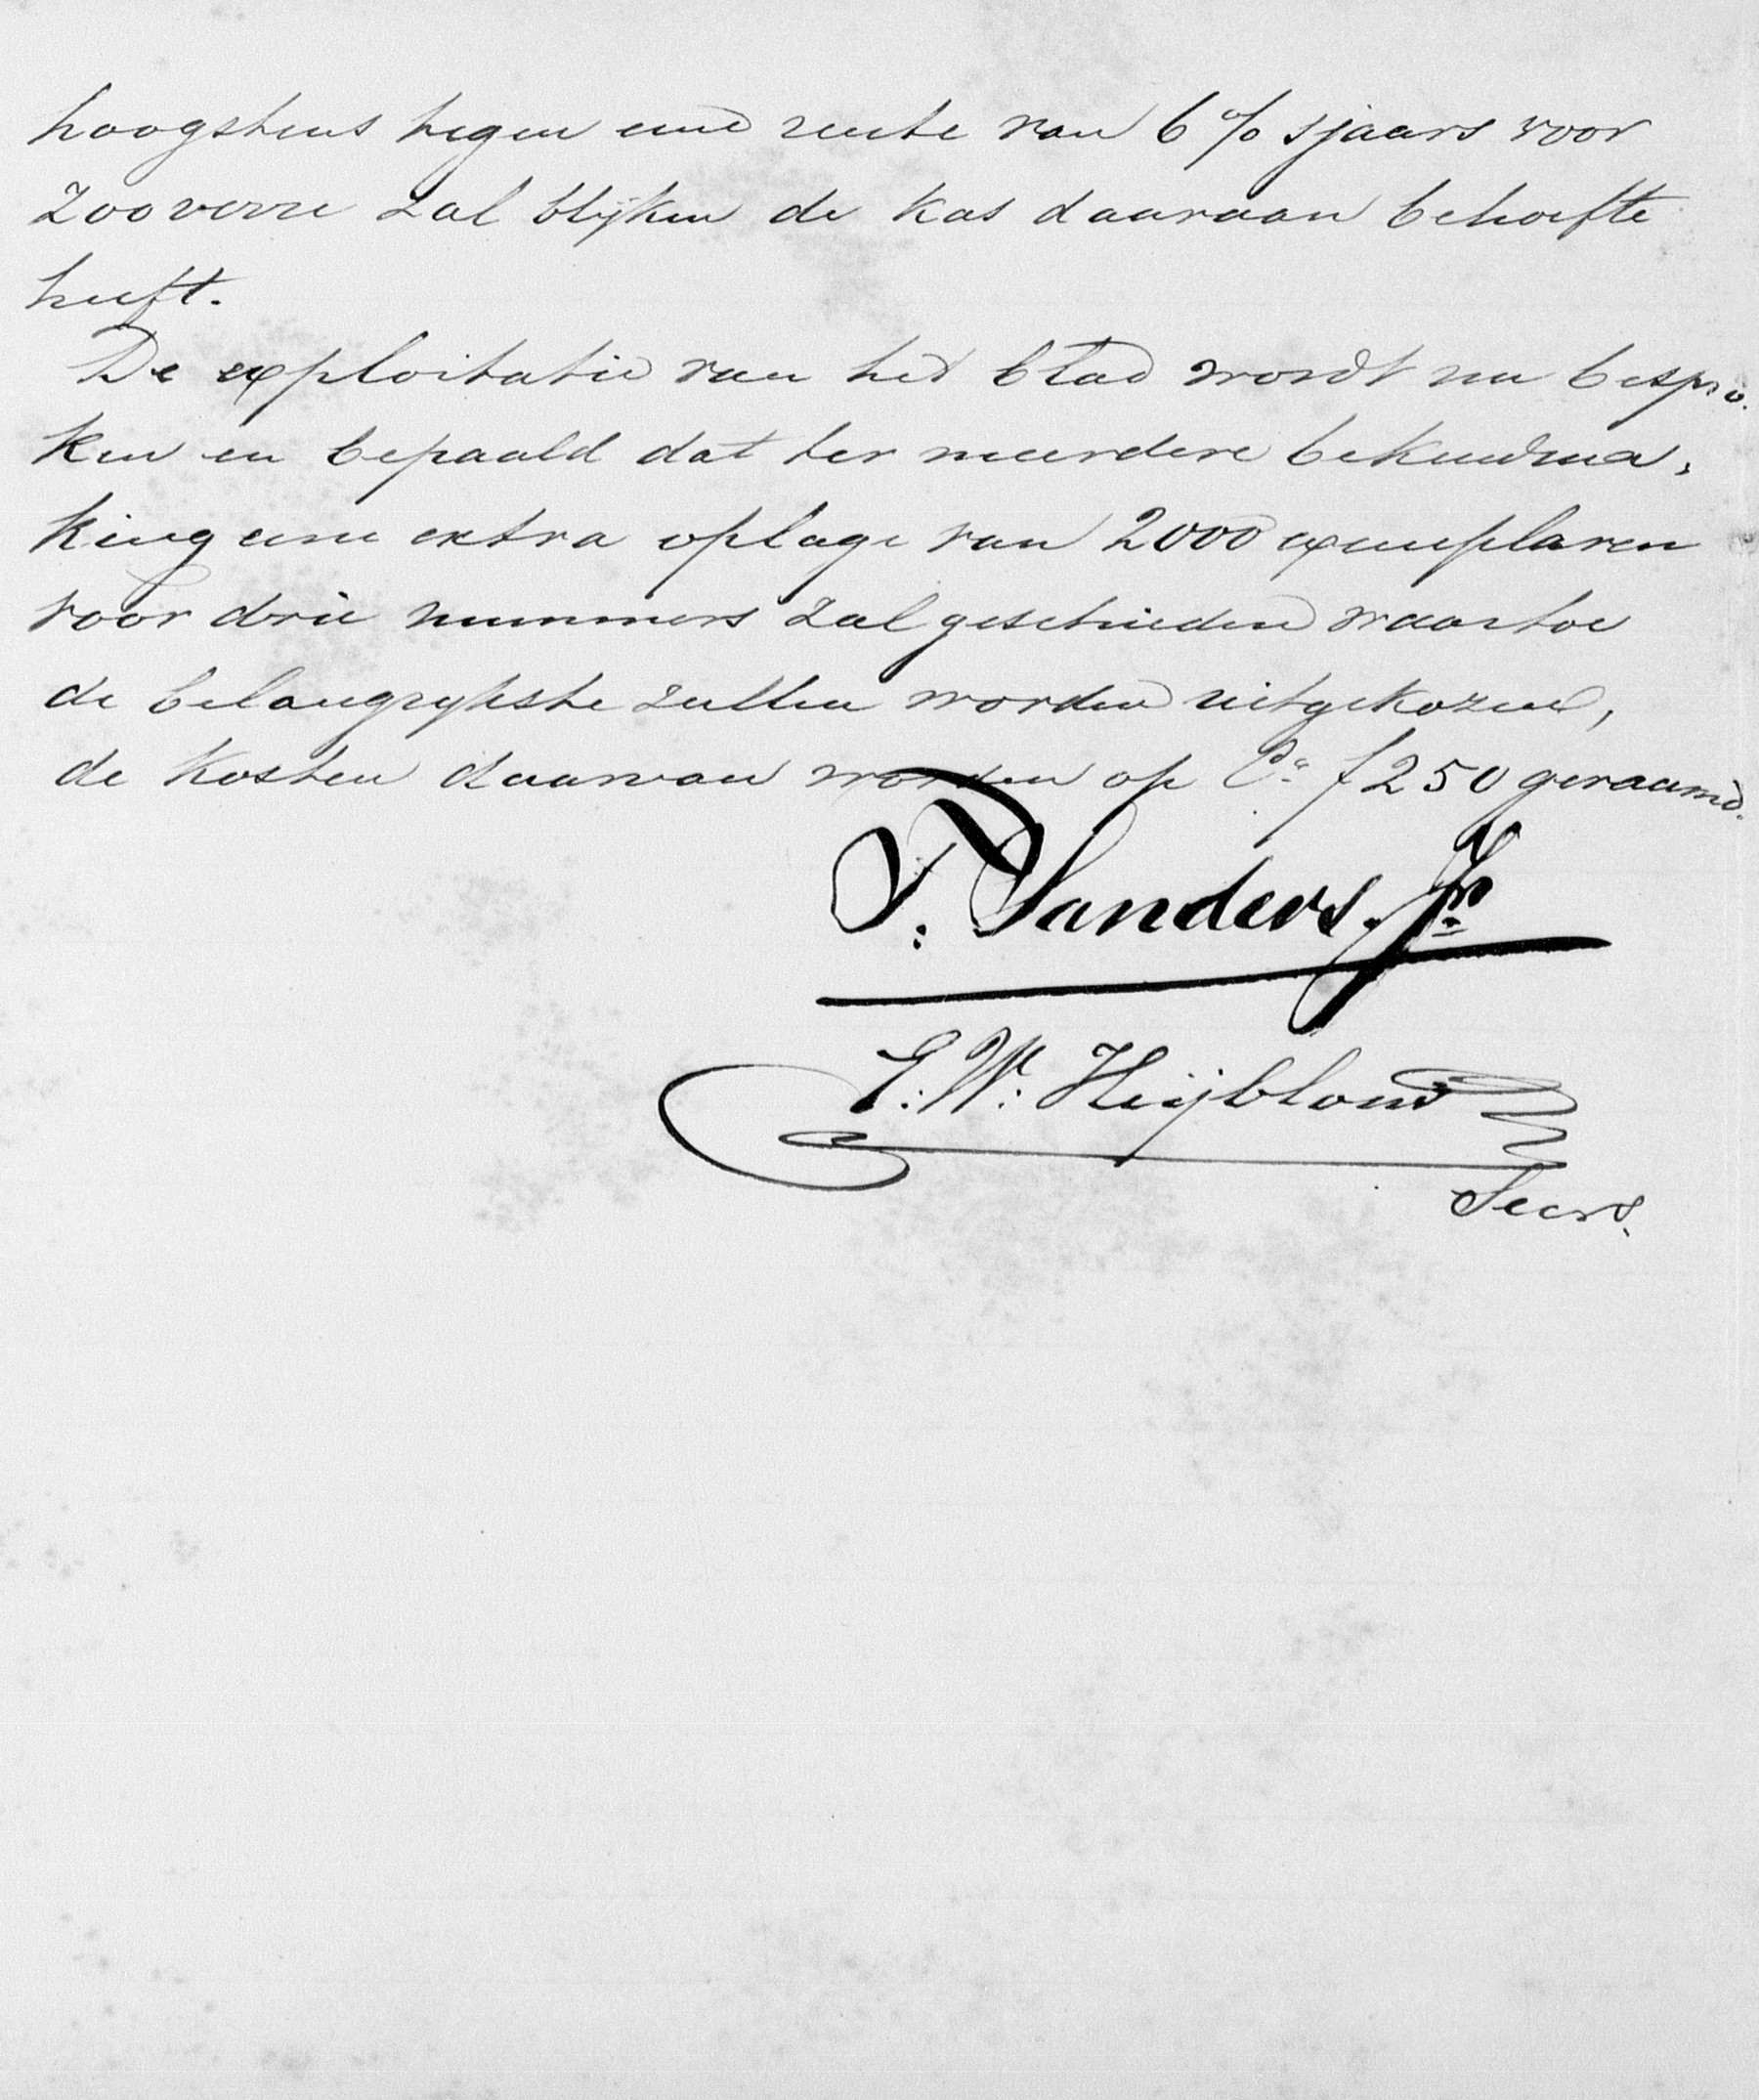 hoogstens tegen eene rente van 6% sjaars voor
zooverre zal blijken de kas daaraan behoefte
heeft.
De exploitatie van het blad wordt nu bespro-
ken en bepaald dat ter meerdere bekendma-
king eene extra oplage van 2000 exemplaren
voor drie nummers zal geschieden waartoe
de belangrijkste zullen worden uitgekozen,
de kosten daarvan worden op Ca f 250 geraamd.
T. Sanders. Jr
E. W. Heijblom
Secrs.